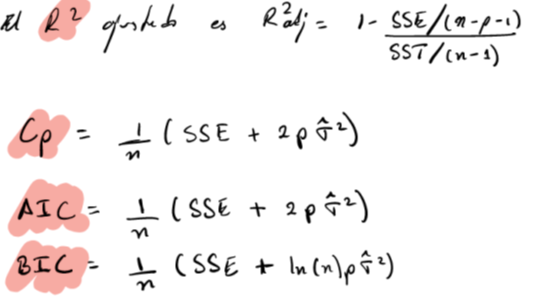 El R² ajustado es R²adj = 1 - SSE/(n-p-1) / SST/(n-1)
Cp = 1/n (SSE + 2pσ̂²)
AIC = 1/n (SSE + 2pσ̂²)
BIC = 1/n (SSE + ln(n)pσ̂²)